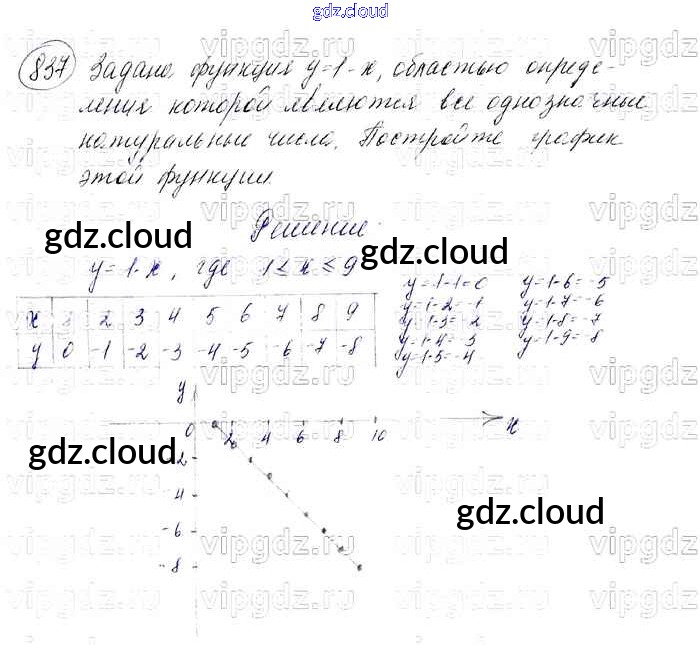 gdz.cloud
837 Задана функция y=1-x, областью опреде-
ления которой являются все однозначные
натуральные числа. Постройте график
этой функции.
Решение.
y=1-x, где 1≤x≤9
x 1 2 3 4 5 6 7 8 9
y 0 -1 -2 -3 -4 -5 -6 -7 -8
y=1-1=0
y=1-2=-1
y=1-3=-2
y=1-4=-3
y=1-5=-4
y=1-6=-5
y=1-7=-6
y=1-8=-7
y=1-9=-8
y
0 2 4 6 8 10 x
-2
-4
-6
-8
gdz.cloud
gdz.cloud
gdz.cloud
gdz.cloud
vipgdz.ru